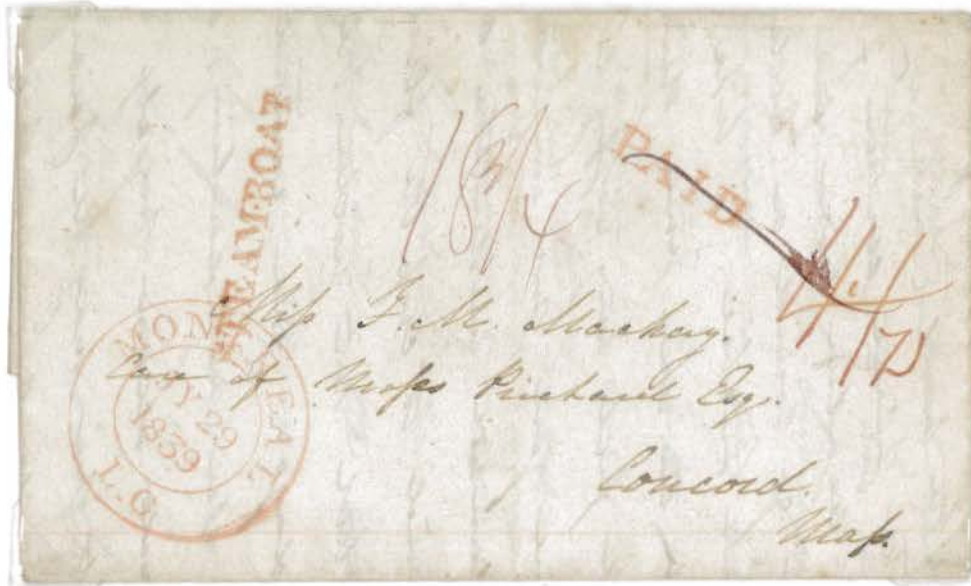 STEAM-BOAT
18 3/4
PAID
MONTREAL
Y 29
1839
L.C
Miss F. M. Mackay.
Care of Moses Prichard Esq.
Concord.
Mass.